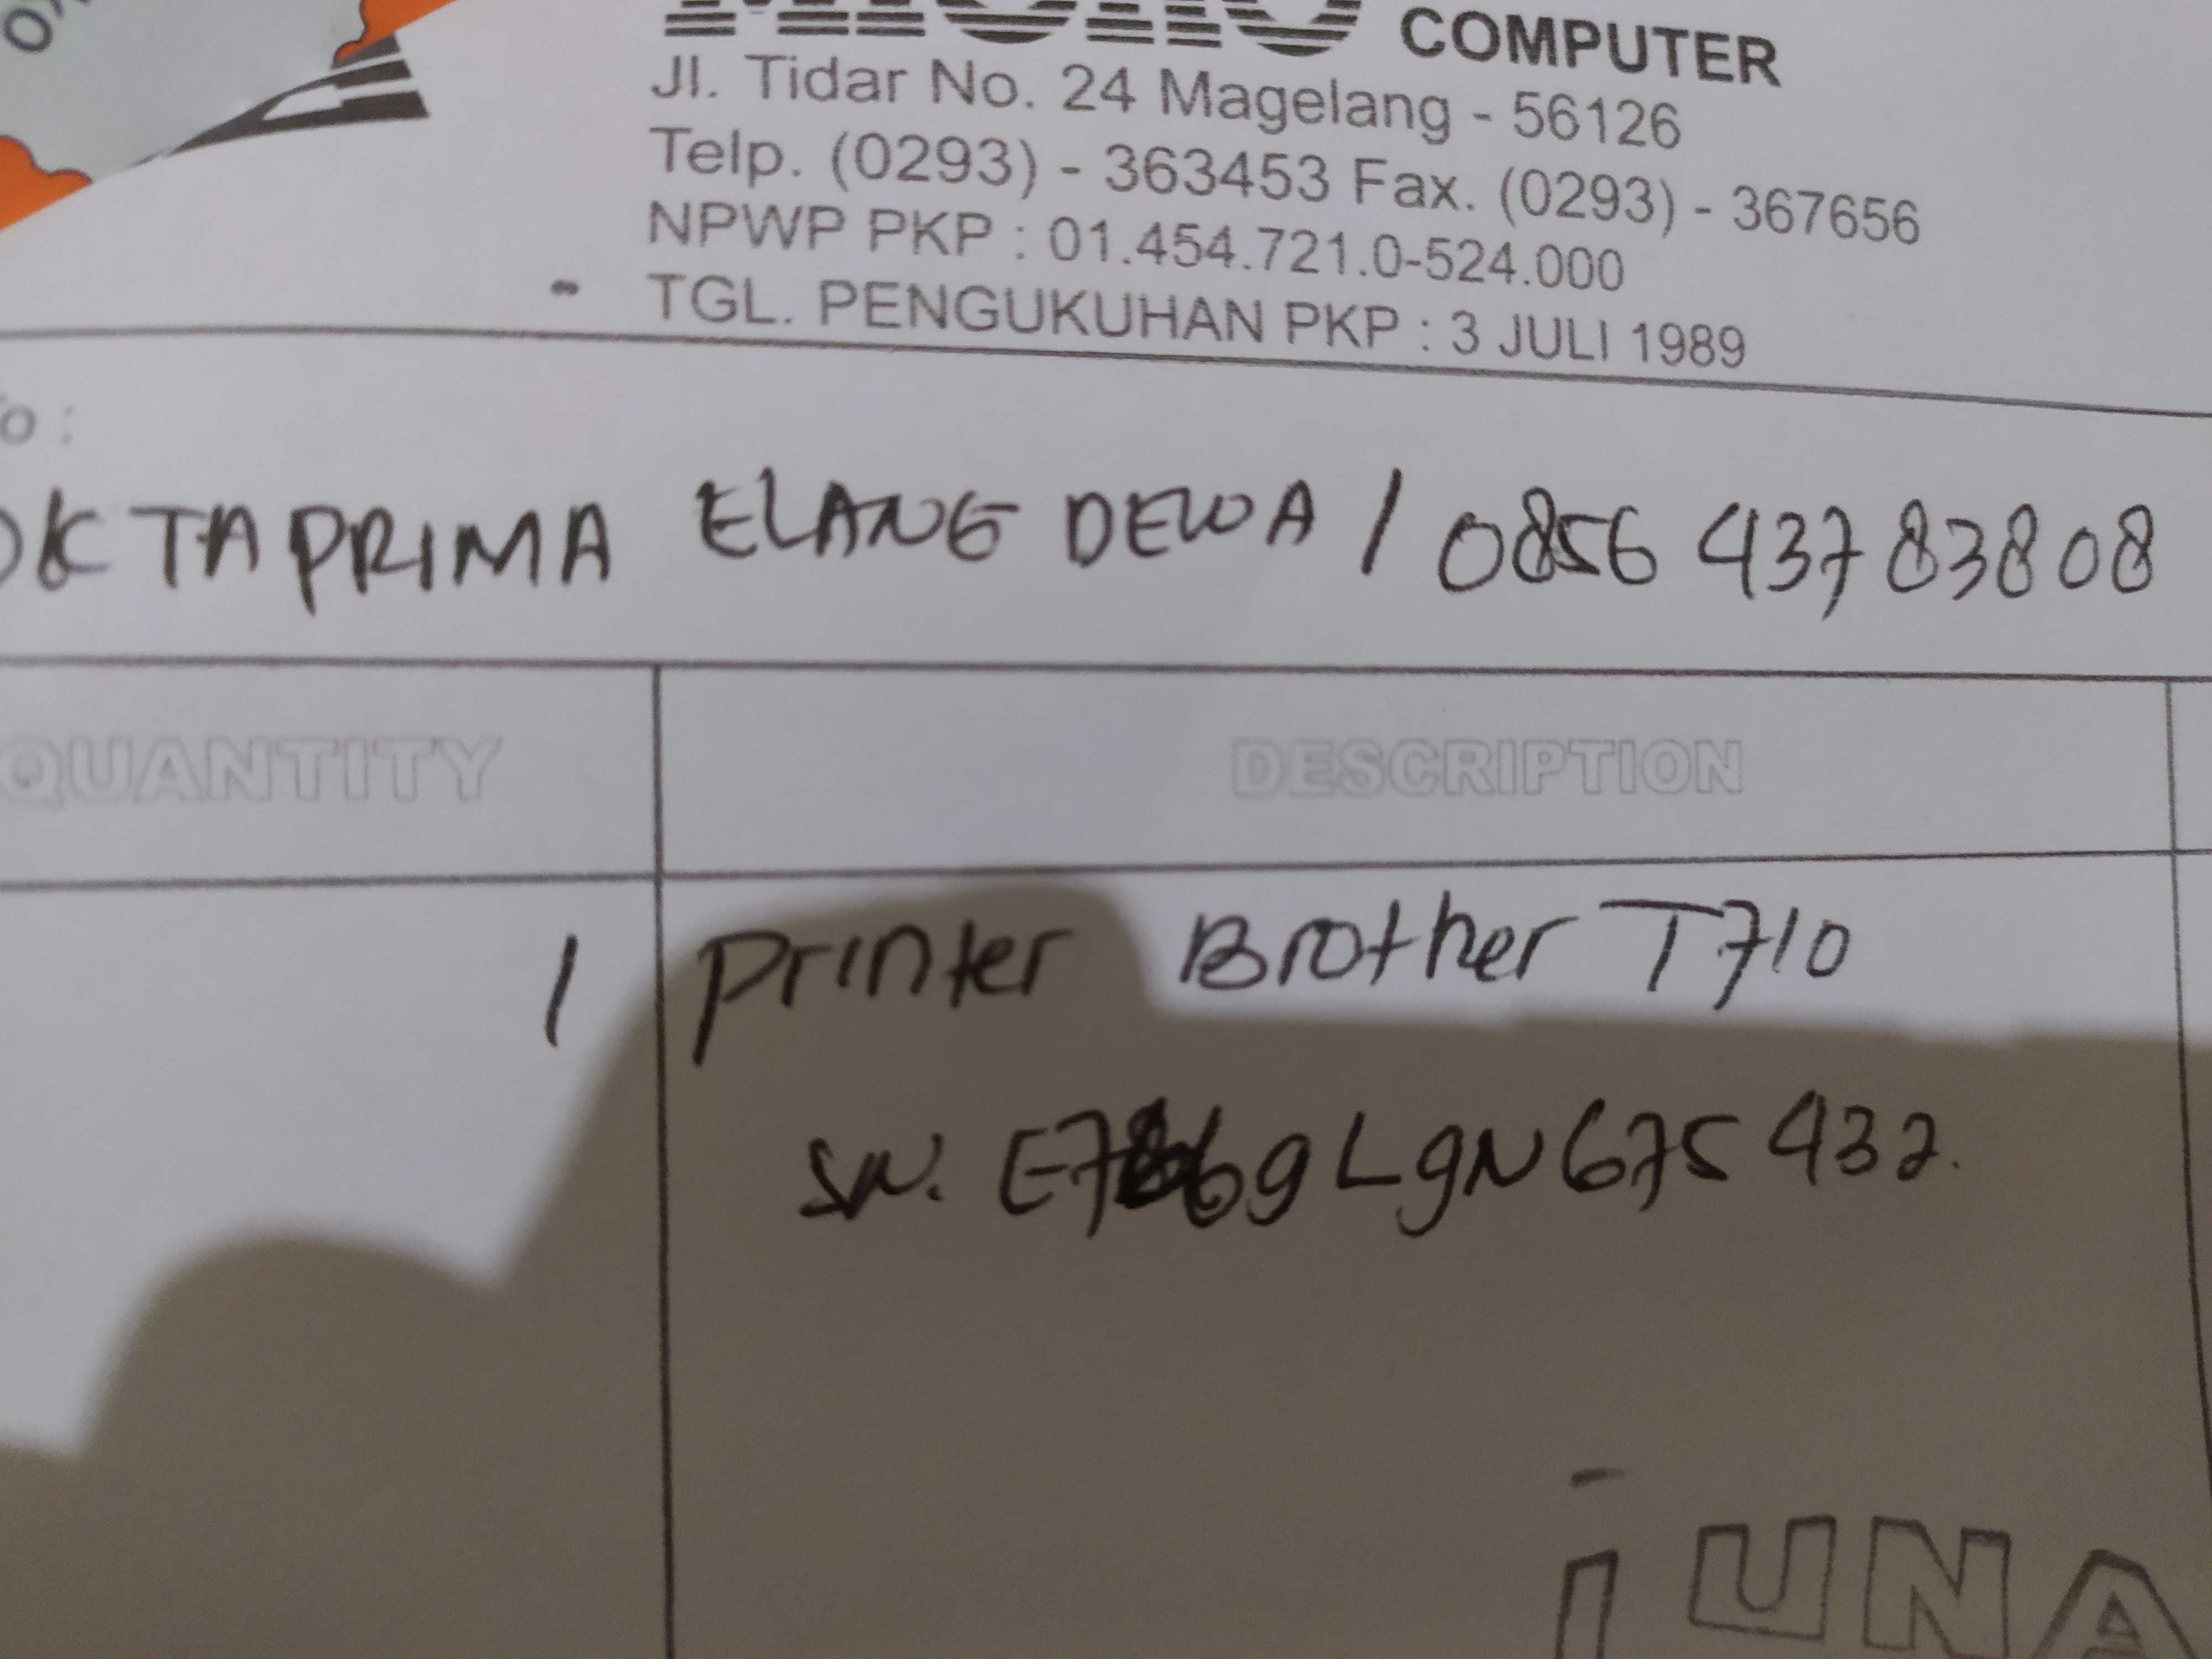 COMPUTER
Jl. Tidar No. 24 Magelang - 56126
Telp. (0293) - 363453 Fax. (0293) - 367656
NPWP PKP : 01.454.721.0-524.000
TGL. PENGUKUHAN PKP : 3 JULI 1989
o :
OKTAPRIMA ELANG DEWA / 0856 437 83808
QUANTITY DESCRIPTION
1 Printer Brother T710
SN.
UNA